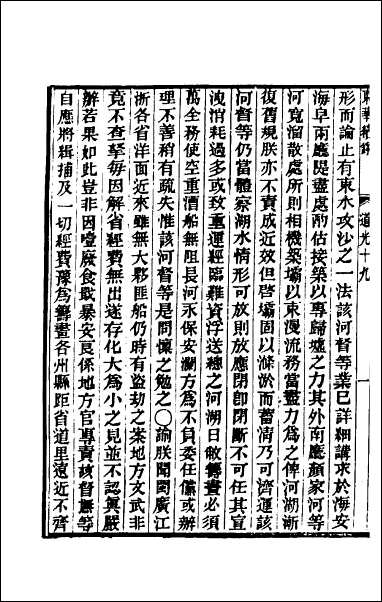 東華續錄 道光十九 一
形而論止有束水攻沙之一法該河督等業已詳細講求於海安
海阜兩廳隄盡處酌估接築以專歸墟之力其外南廳顏家河等
河寬溜散處所則相機築壩以束漫流務當盡力爲之俾河湖漸
復舊規朕亦不責成近效但啓壩固以滌淤而蓄清乃可濟運該
河督等仍當體察湖水情形可放則放應閉卽閉斷不可任其宣
洩消耗過多或致重運經臨難資浮送總之河湖日敝籌畫必須
萬全務使空重漕船無阻長河永保安瀾方爲不負委任儻或辦
理不善稍有疏失惟該河督等是問懍之勉之○諭朕聞閩廣江
浙各省洋面近來雖無大夥匪船仍時有盜劫之案地方文武非
竟不查拏每因解省經費無出遂存化大爲小之見並不認眞嚴
辦若果如此豈非因噎廢食戢暴安良係地方官專責該督撫等
自應將緝捕及一切經費豫爲籌畫各州縣距省道里遠近不齊